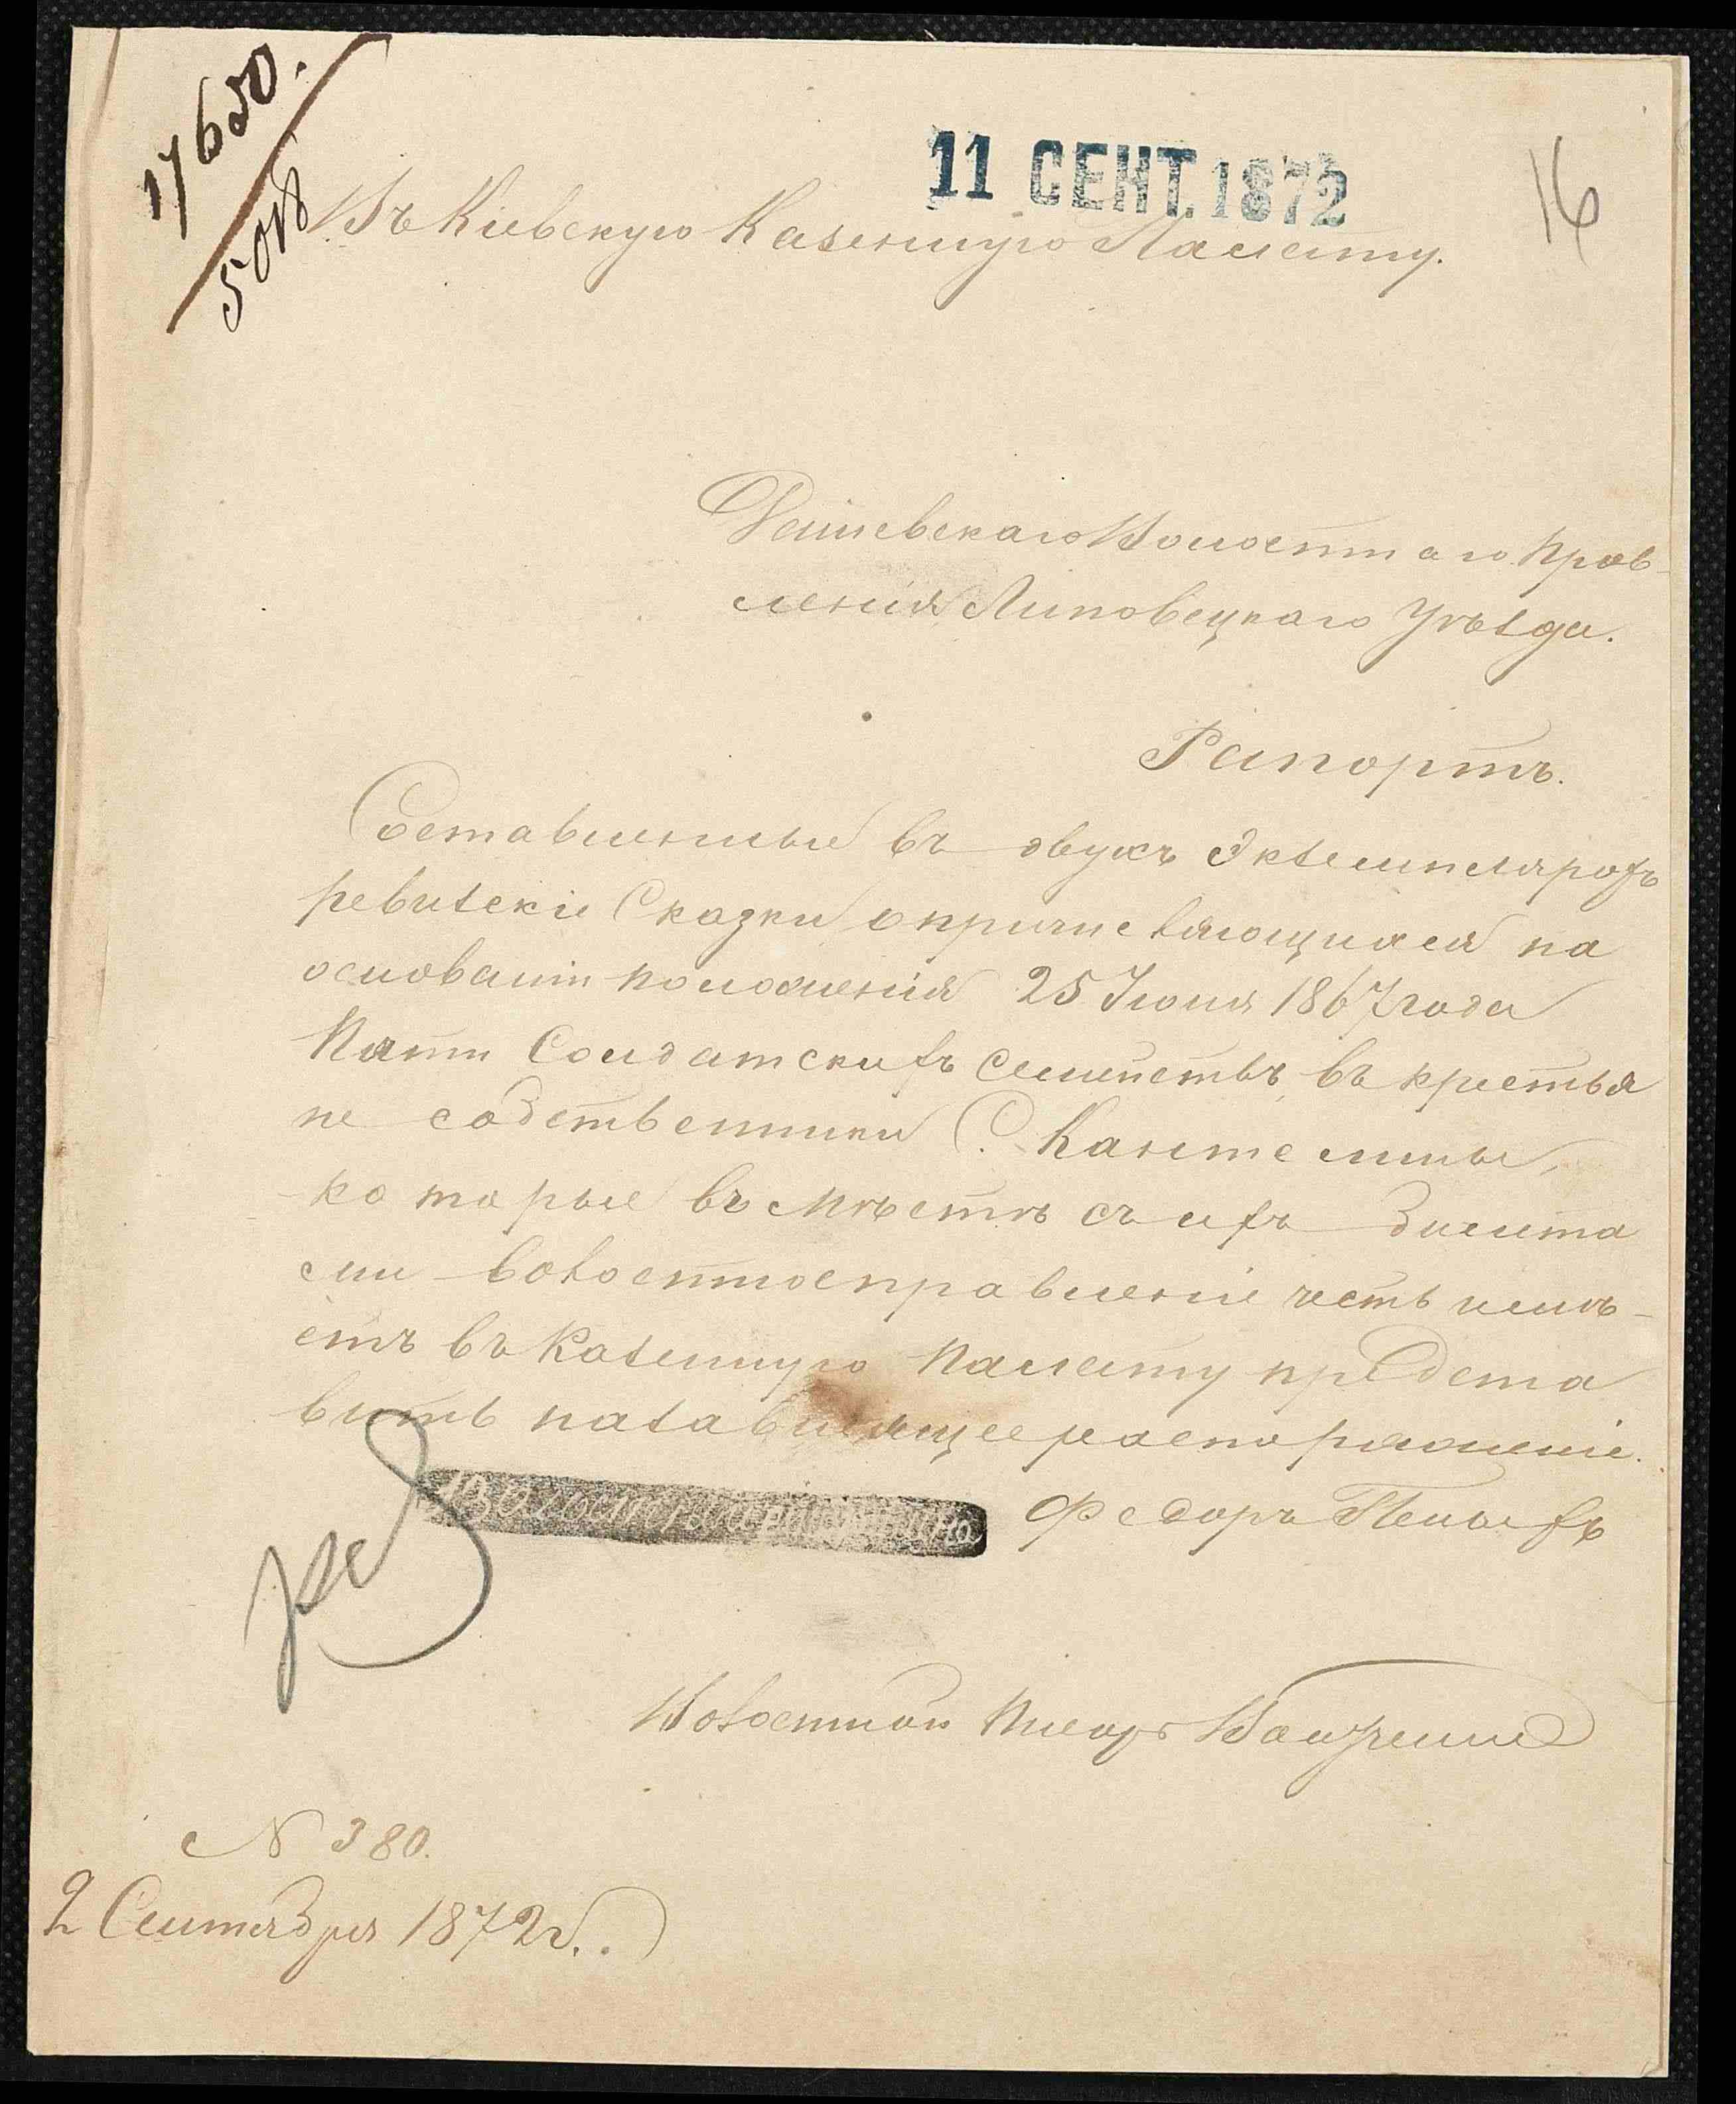 17650.
11 СЕНТ. 1872
16
Въ Кіевскую Казенную Палату.
Дашевскаго Волостнаго Прав-
ленія Липовецкаго Уѣзда.
Рапортъ.
Составленные въ двухъ Экземплярохъ
ревизскіе Сказки о причисляющихся на
основаніи положенія 25 Іюня 1867 года
Пяти Солдатскихъ семействъ, въ крестья
не собственники С. Кантелины,
которые въ Мѣстѣ съ ихъ билета
ми волостное правленіе честь имѣ-
етъ въ Казенную Палату предста
вить назавис​ящее распоряженіе.
Федоръ
Волостной Писарь
N 380.
2 Сентября 1872 г.